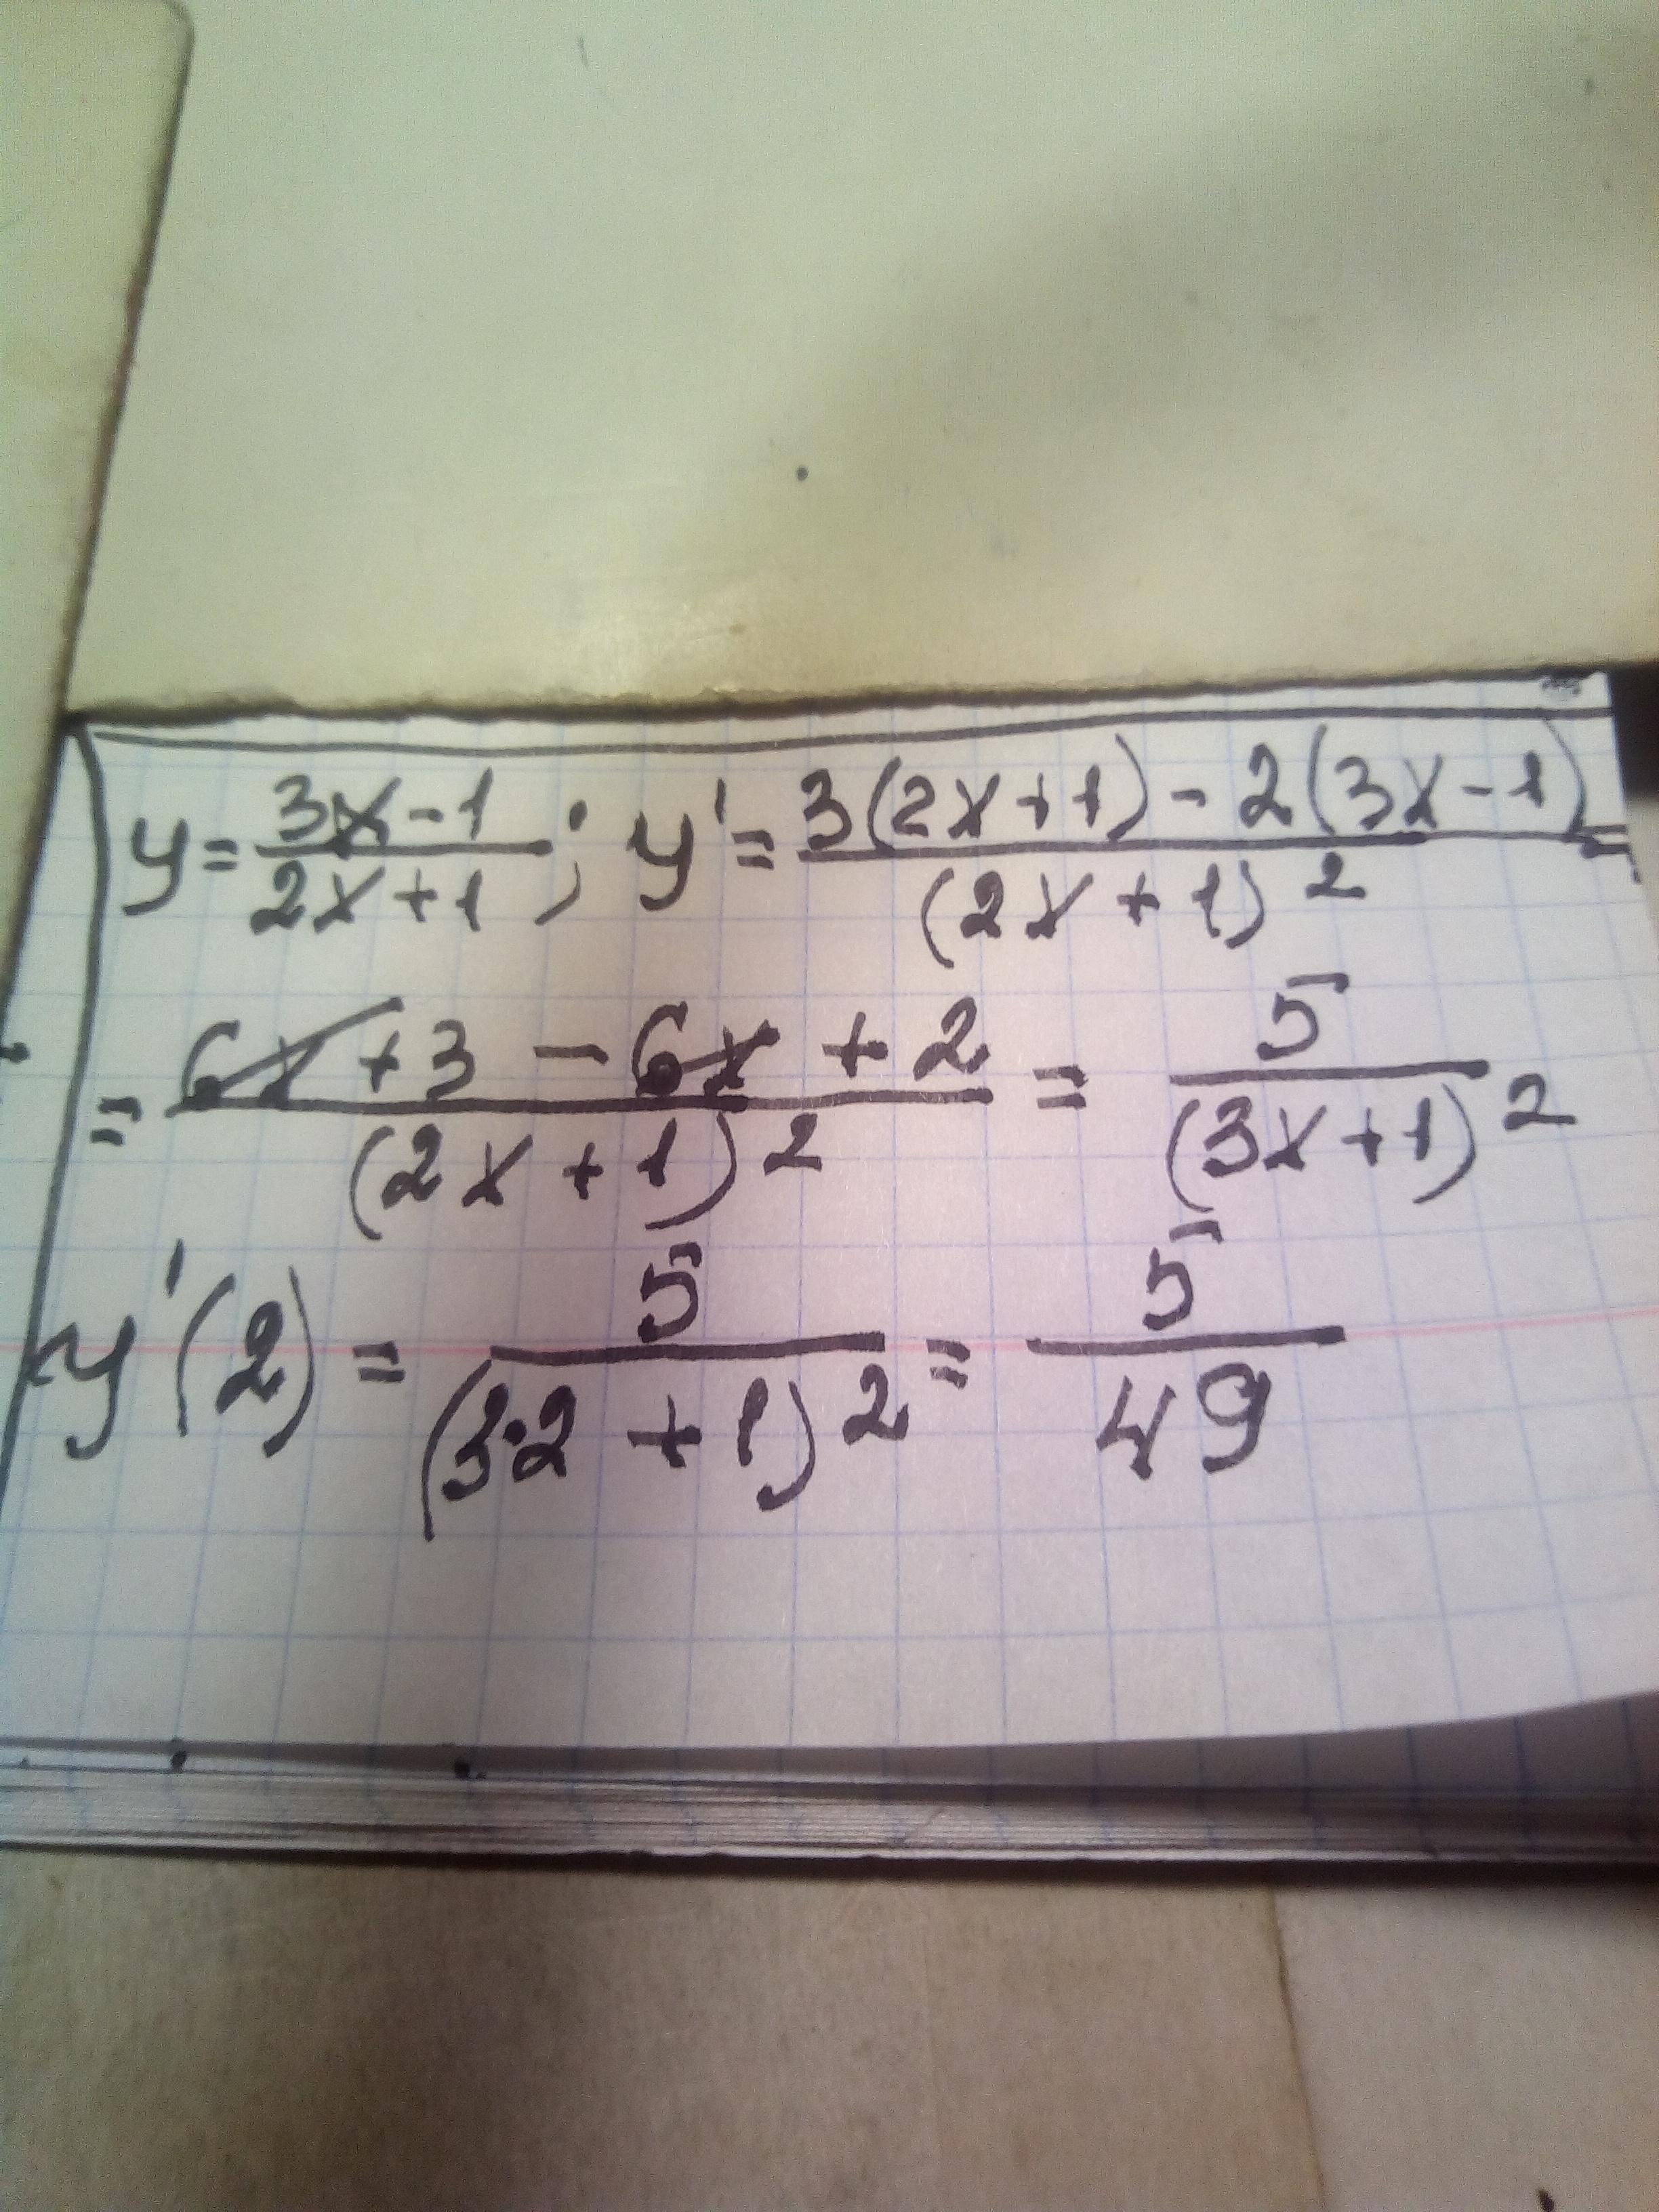 y = (3x - 1)/(2x + 1); y' = (3(2x + 1) - 2(3x - 1))/(2x + 1)² =
= (6x + 3 - 6x + 2)/(2x + 1)² = 5/(3x + 1)²
y'(2) = 5/(3·2 + 1)² = 5/49